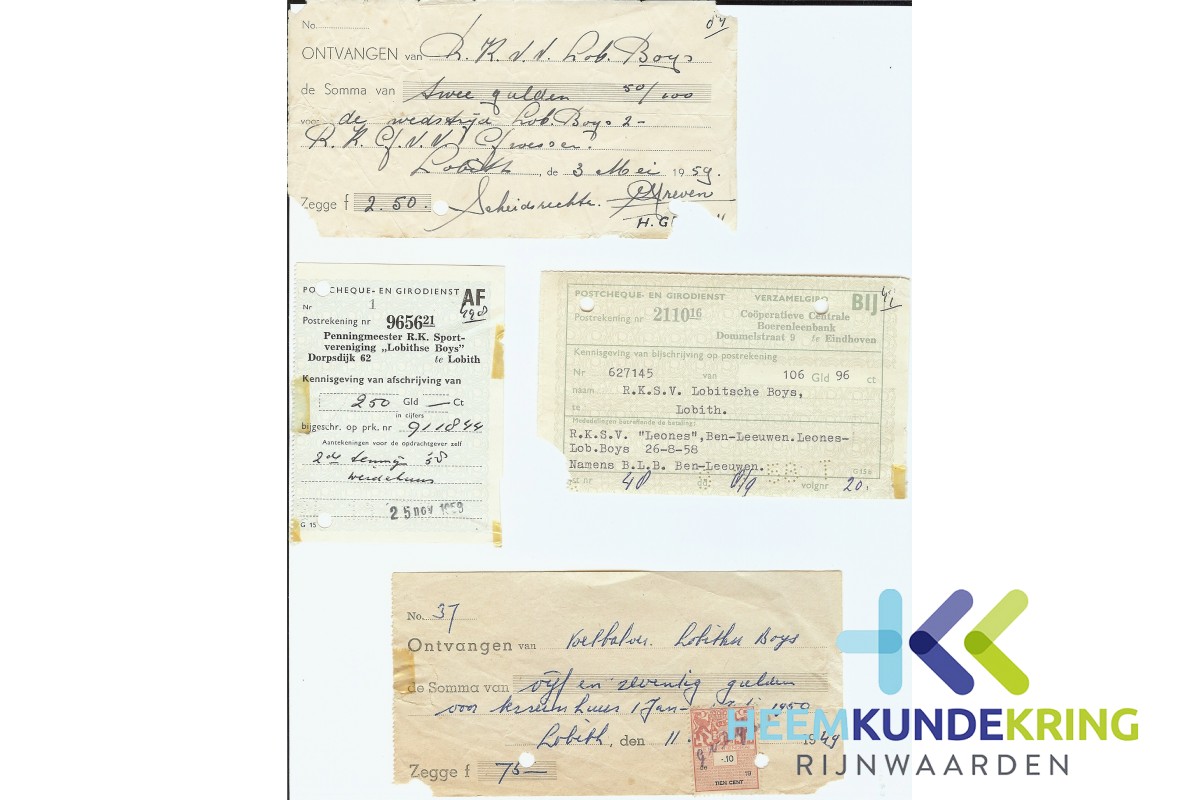 No.
ONTVANGEN van R.K.V.V. Lob. Boys
de Somma van twee gulden 50/100
voor de wedstrijd Lob. Boys 2-
Lobith, de 3 Mei 1959.
Zegge f 2.50. Scheidsrechter. Greven
H. G
POSTCHEQUE- EN GIRODIENST AF
Nr 1
Postrekening nr 9656 21
Penningmeester R.K. Sport-
vereniging „Lobithse Boys"
Dorpsdijk 62 te Lobith
Kennisgeving van afschrijving van
250 Gld — Ct
in cijfers
bijgeschr. op prk. nr 911844
Aantekeningen voor de opdrachtgever zelf
2de termijn 58
25 NOV 1958
G 15
POSTCHEQUE- EN GIRODIENST VERZAMELGIRO BIJ
Postrekening nr 2110 16 Coöperatieve Centrale
Boerenleenbank
Dommelstraat 9 te Eindhoven
Kennisgeving van bijschrijving op postrekening
Nr 627145 van 106 Gld 96 ct
naam R.K.S.V. Lobitsche Boys,
te Lobith.
Mededelingen betreffende de betaling:
R.K.S.V. "Leones",Ben-Leeuwen.Leones-
Lob.Boys 26-8-58
Namens B.L.B. Ben-Leeuwen.
G 15 6
nr 48 dg 8/9 volgnr 20
No. 37
Ontvangen van Voetbalver. Lobithse Boys
de Somma van vijf en zeventig gulden
voor 1 Jan- 1950
Lobith, den 11 1949
Zegge f 75—
-.10
TIEN CENT
19
HEEMKUNDEKRING
RIJNWAARDEN